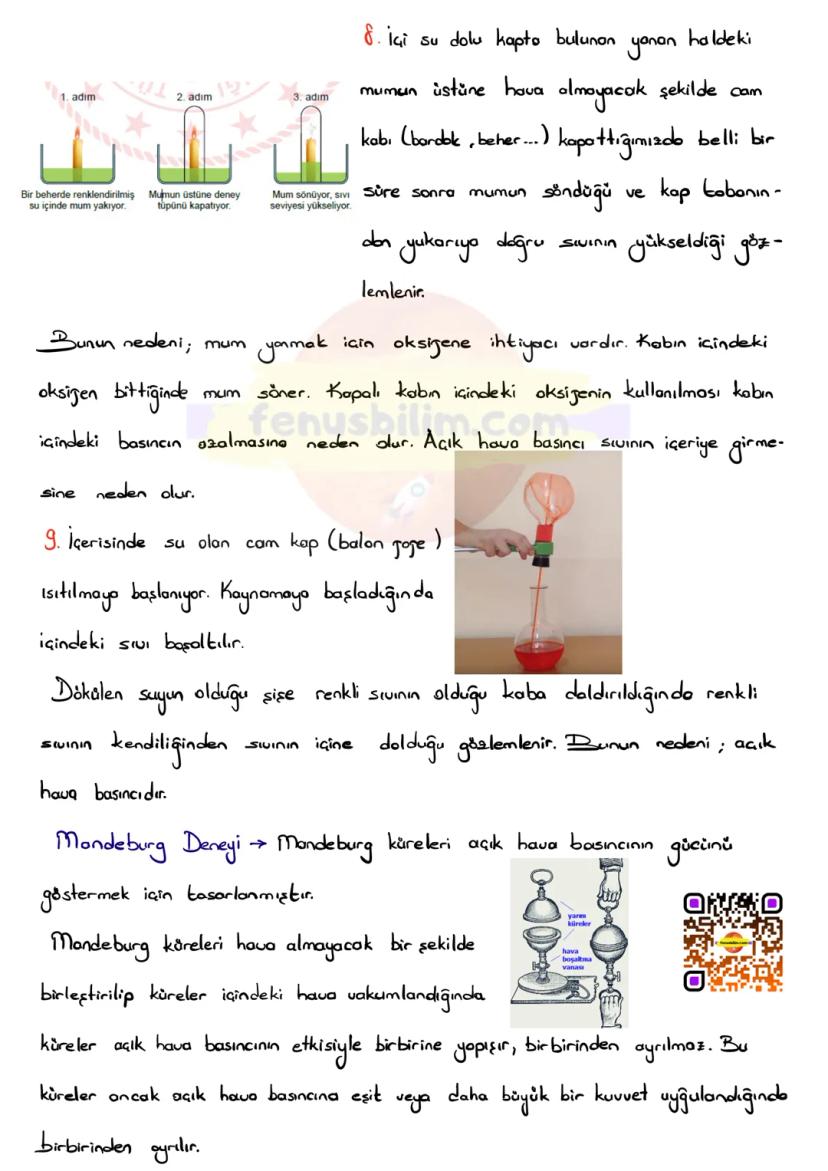 8. İçi su dolu kapta bulunan yanan haldeki
mumun üstüne hava almayacak şekilde cam
kabı (bardak, beher...) kapattığımızda belli bir
süre sonra mumun söndüğü ve kap tabanın-
dan yukarıya doğru sıvının yükseldiği göz-
lemlenir.
1. adım
2. adım
3. adım
Bir beherde renklendirilmiş
su içinde mum yakıyor.
Mumun üstüne deney
tüpünü kapatıyor.
Mum sönüyor, sıvı
seviyesi yükseliyor.
Bunun nedeni; mum yanmak için oksijene ihtiyacı vardır. Kabın içindeki
oksijen bittiğinde mum söner. Kapalı kabın içindeki oksijenin kullanılması kabın
fenusbilim.com
içindeki basıncın azalmasına neden olur. Açık hava basıncı sıvının içeriye girme-
sine neden olur.
9. İçerisinde su olan cam kap (balon joje)
ısıtılmaya başlanıyor. Kaynamaya başladığında
içindeki sıvı boşaltılır.
Dökülen suyun olduğu şişe renkli sıvının olduğu kaba daldırıldığında renkli
sıvının kendiliğinden sıvının içine dolduğu gözlemlenir. Bunun nedeni; açık
hava basıncıdır.
Mandeburg Deneyi → Mandeburg küreleri açık hava basıncının gücünü
göstermek için tasarlanmıştır.
Mandeburg küreleri hava almayacak bir şekilde
birleştirilip küreler içindeki hava vakumlandığında
küreler açık hava basıncının etkisiyle birbirine yapışır, birbirinden ayrılmaz. Bu
küreler ancak açık hava basıncına eşit veya daha büyük bir kuvvet uygulandığında
birbirinden ayrılır.
yarım
küreler
hava
boşaltma
vanası
fenusbilim.com